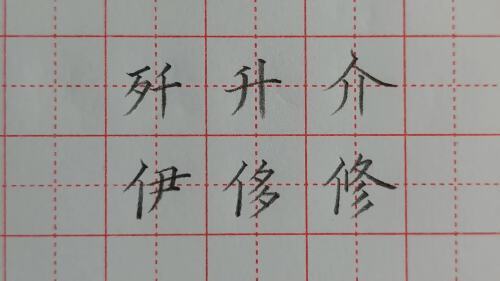 歼升介
伊侈修